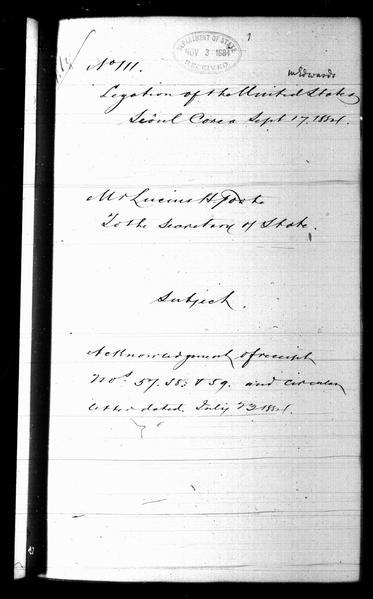 DEPARTMENT OF STATE
NOV 3 1884
RECEIVED
No 111.
Mr Edwards
Legation of the United States
Seoul Corea Sept 17. 1884.
Mr Lucius H. Foote
To the Secretary of State.
Subject
Acknowledgment of receipt
Nos. 57. 58. & 59. and circular
letter dated. July 23 1884.